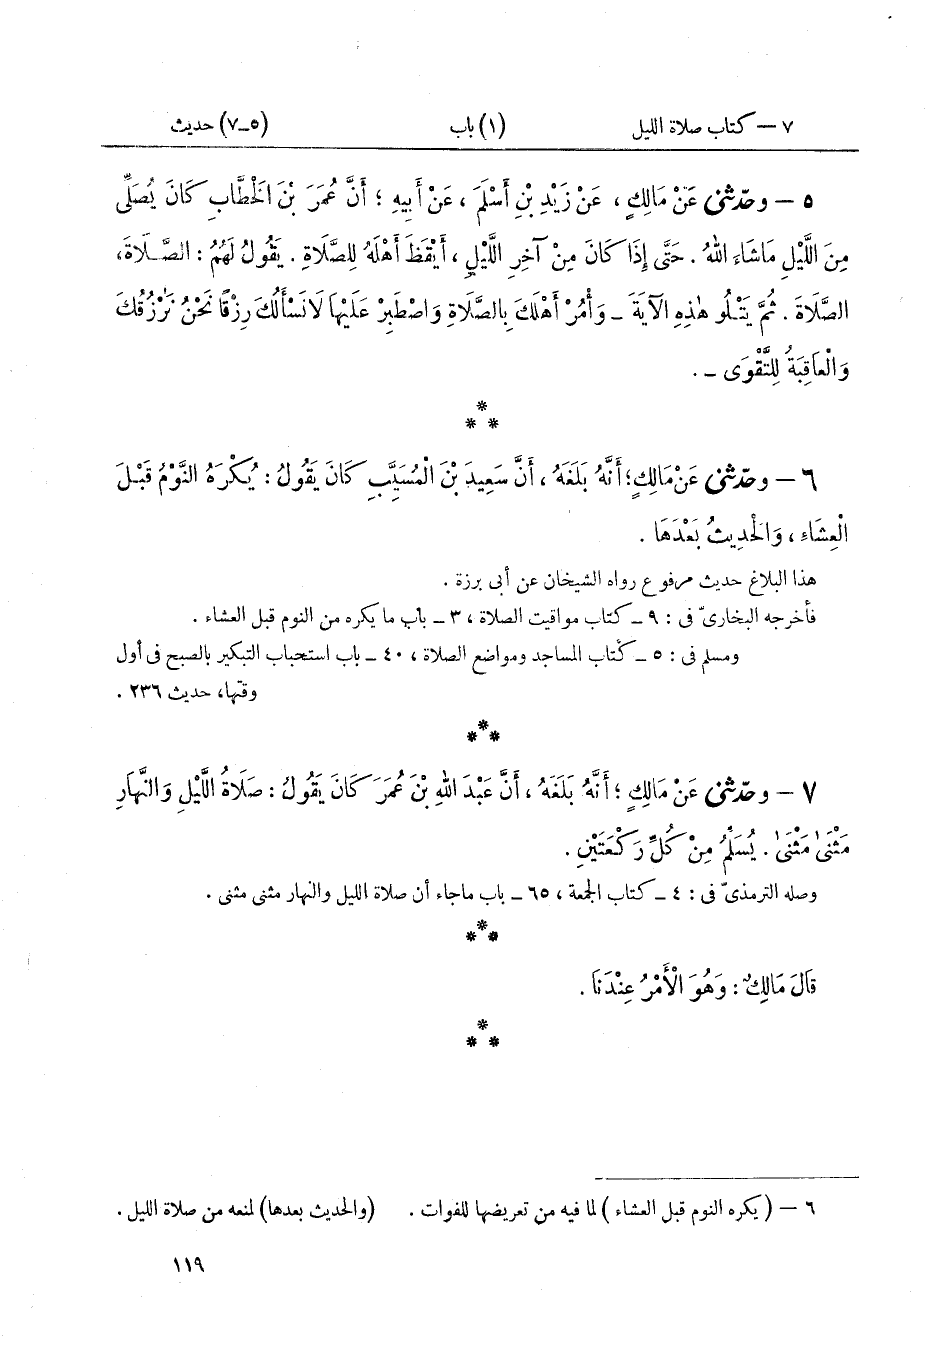 ٧ — كتاب صلاة الليل (١) باب (٥-٧) حديث
٥ — وحدّثنى عَنْ مَالِكٍ ، عَنْ زَيْدِ بْنِ أَسْلَمَ ، عَنْ أَبِيهِ ؛ أَنَّ عُمَرَ بْنَ الْخَطَّابِ كَانَ يُصَلِّى
مِنَ اللَّيْلِ مَاشَاءَ اللهُ . حَتَّى إِذَا كَانَ مِنْ آخِرِ اللَّيْلِ ، أَيْقَظَ أَهْلَهُ لِلصَّلَاةِ . يَقُولُ لَهُمُ : الصَّلَاةَ،
الصَّلَاةَ . ثُمَّ يَتْلُو هٰذِهِ الآيَةَ ـ وَأْمُرْ أَهْلَكَ بِالصَّلَاةِ وَاصْطَبِرْ عَلَيْهَا لَانَسْأَلُكَ رِزْقًا نَحْنُ نَرْزُقُكَ
وَالْعَاقِبَةُ لِلتَّقْوَى ـ .
***
٦ — وحدّثنى عَنْ مَالِكٍ؛ أَنَّهُ بَلَغَهُ ، أَنَّ سَعِيدَ بْنَ الْمُسَيَّبِ كَانَ يَقُولُ : يُكْرَهُ النَّوْمُ قَبْلَ
الْعِشَاءِ ، وَالْحَدِيثُ بَعْدَهَا .
هذا البلاغ حديث مرفوع رواه الشيخان عن أبى برزة .
فأخرجه البخارىّ فى : ٩ ـ كتاب مواقيت الصلاة ، ٣ ـ باب ما يكره من النوم قبل العشاء .
ومسلم فى : ٥ ـ كتاب المساجد ومواضع الصلاة ، ٤٠ ـ باب استحباب التبكير بالصبح فى أول
وقتها، حديث ٢٣٦ .
***
٧ — وحدّثنى عَنْ مَالِكٍ ؛ أَنَّهُ بَلَغَهُ ، أَنَّ عَبْدَ اللهِ بْنَ عُمَرَ كَانَ يَقُولُ : صَلَاةُ اللَّيْلِ وَالنَّهَارِ
مَثْنَىٰ مَثْنَىٰ . يُسَلِّمُ مِنْ كُلِّ رَكْعَتَيْنِ .
وصله الترمذىّ فى : ٤ ـ كتاب الجمعة ، ٦٥ ـ باب ماجاء أن صلاة الليل والنهار مثنى مثنى .
***
قَالَ مَالِكٌ : وَهُوَ الْأَمْرُ عِنْدَنَا .
***
٦ — (يكره النوم قبل العشاء ) لما فيه من تعريضها للفوات . (والحديث بعدها) لمنعه من صلاة الليل .
١١٩